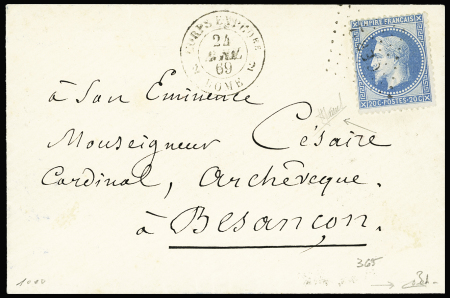 CORPS EXP.
24
69
ROME
EMPIRE FRANÇAIS
20 C · POSTES · 20 C
à Son Eminence
Monseigneur Césaire
Cardinal, Archêveque.
à Besançon.
365
1000